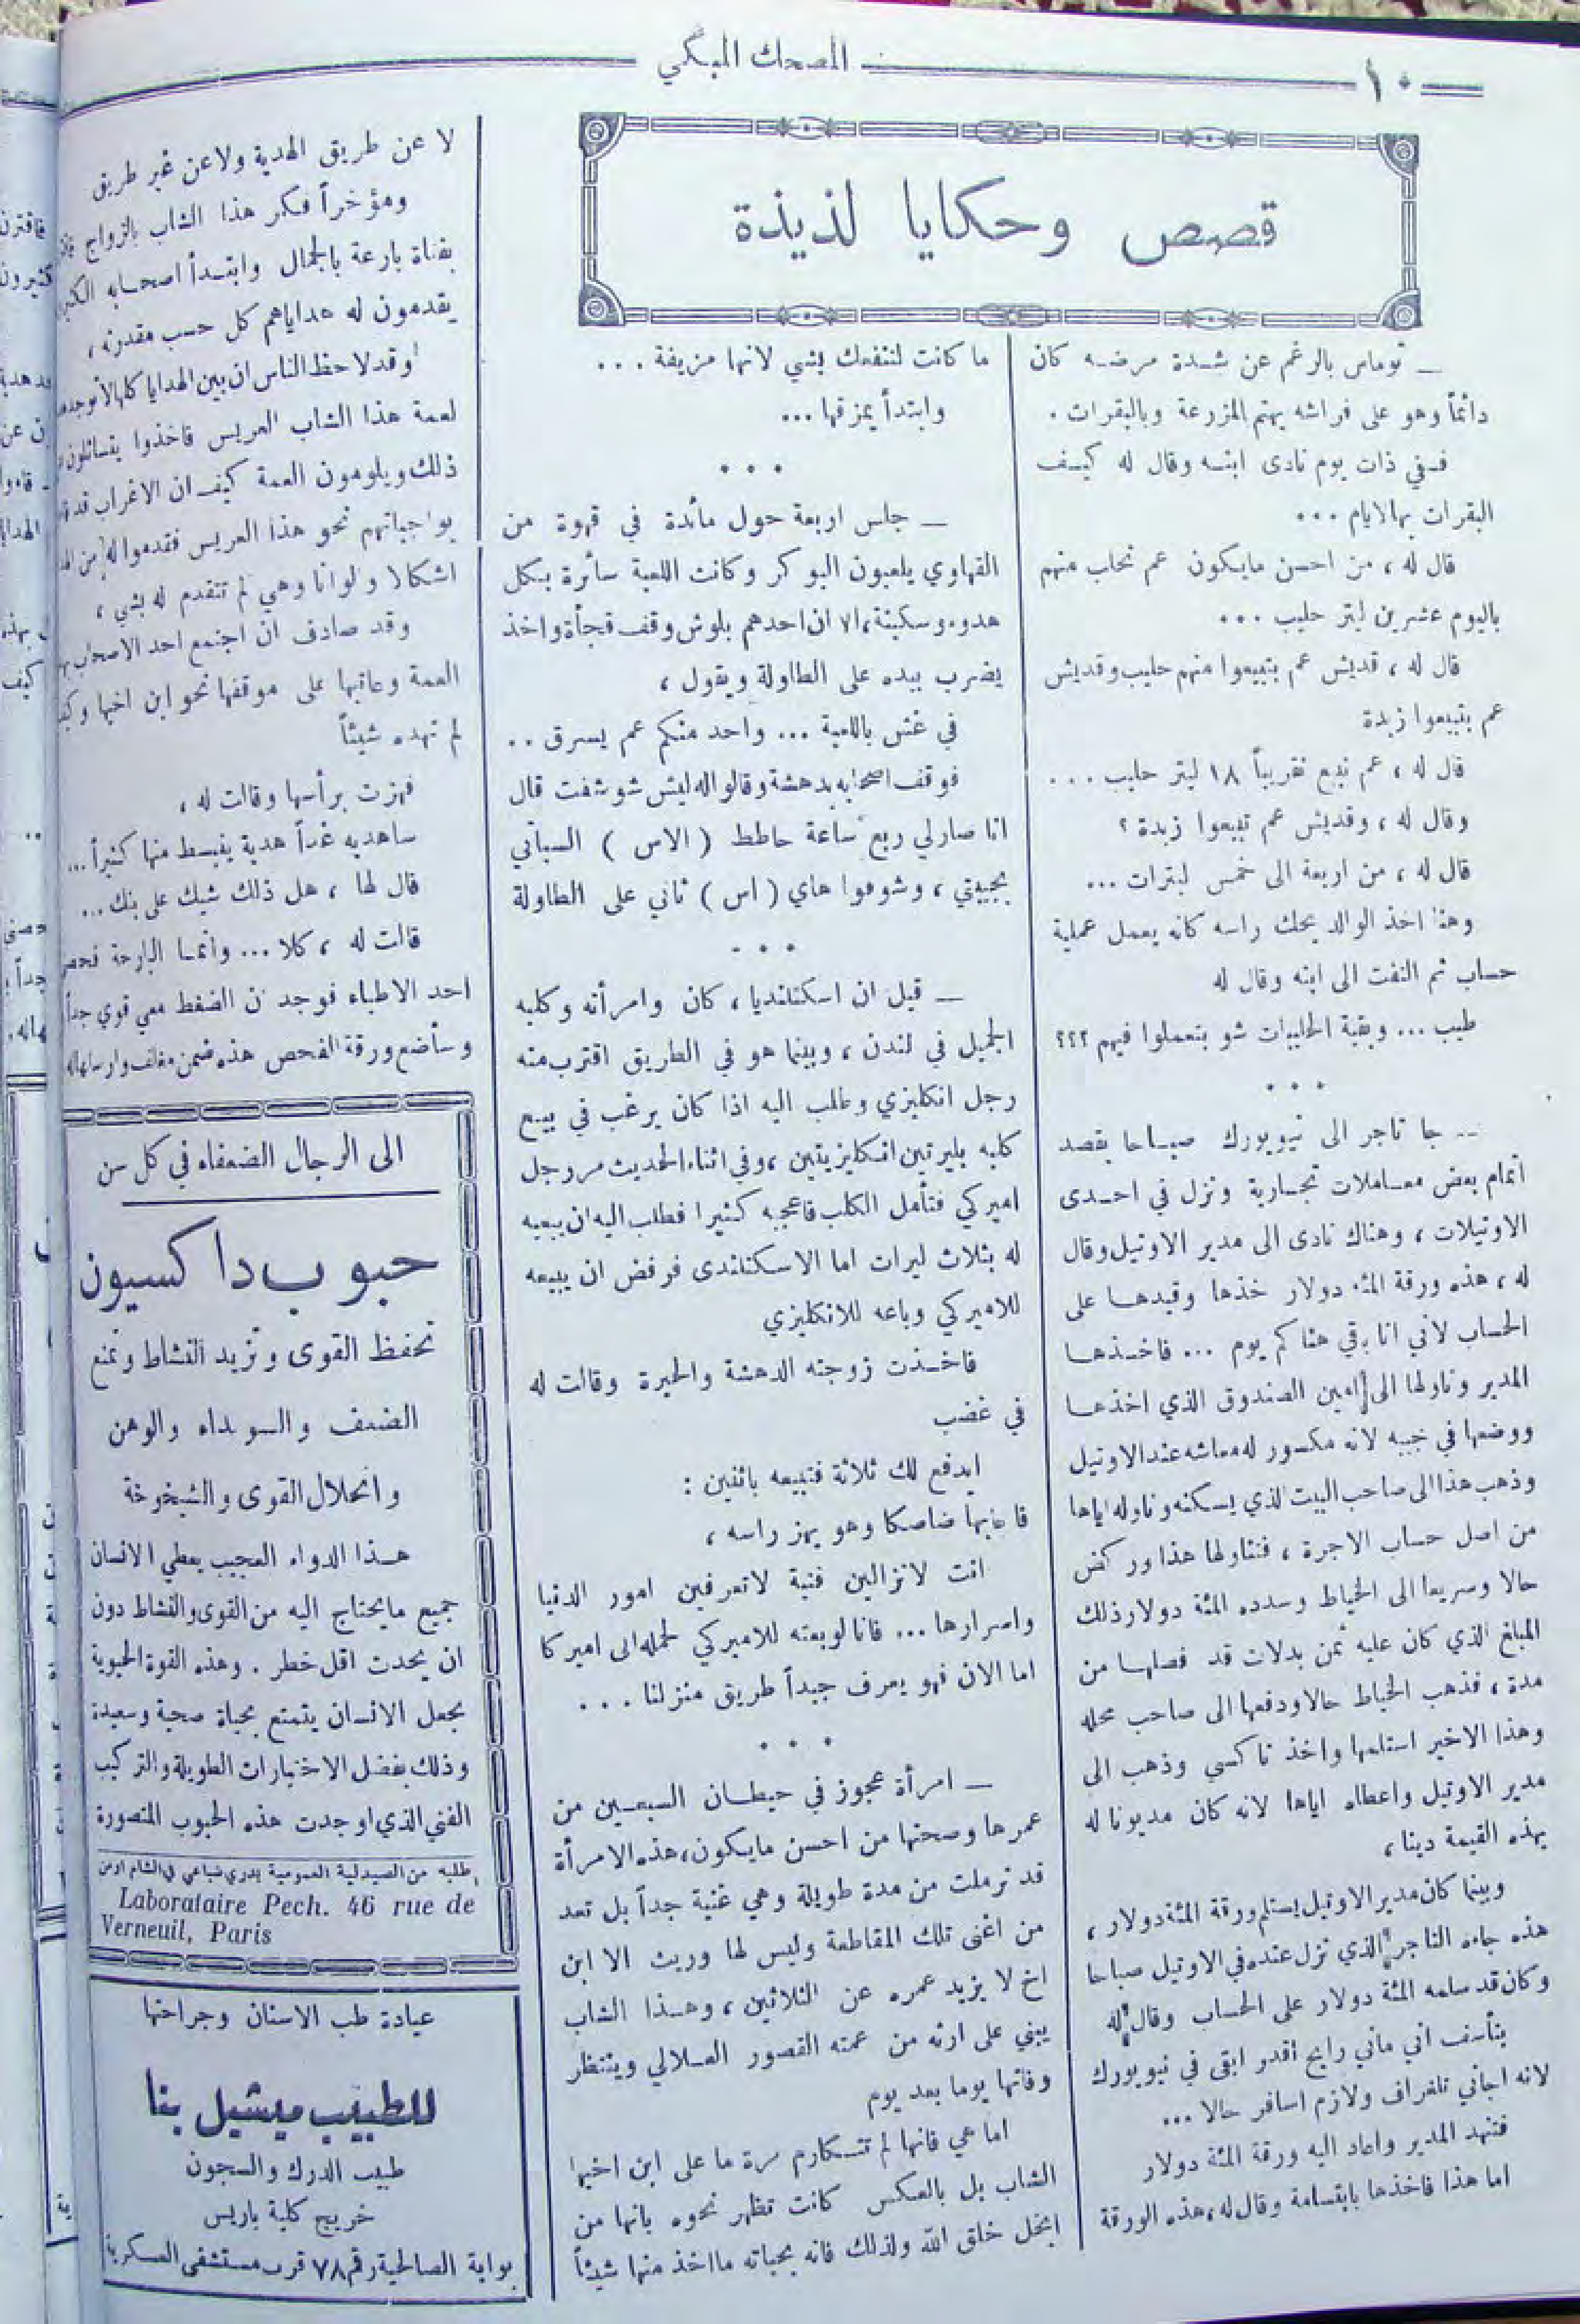 ١٠
المضحك المبكي
قصص وحكايا لذيذة
ـ توماس بالرغم عن شدة مرضه كان
دائماً وهو على فراشه يهتم بالمزرعة وبالبقرات .
ففي ذات يوم نادى ابنه وقال له كيف
البقرات بهالايام ...
قال له ، من احسن مايكون عم نحلب منهم
باليوم عشرين ليتر حليب ...
قال له ، قديش عم بتبيعوا منهم حليب وقديش
عم بتبيعوا زبدة
قال له ، عم نبيع تقريباً ١٨ ليتر حليب ...
وقال له ، وقديش عم تبيعوا زبدة ؟
قال له ، من اربعة الى خمس ليترات ...
وهنا اخذ الوالد يحك راسه كانه يعمل عملية
حساب ثم التفت الى ابنه وقال له
طيب ... وبقية الحليبات شو بتعملوا فيهم ؟؟؟
• • •
ـ جا تاجر الى نيويورك صباحا بقصد
اتمام بعض معاملات تجارية ونزل في احدى
الاوتيلات ، وهناك نادى الى مدير الاوتيل وقال
له ، هذه ورقة المئة دولار خذها وقيدها على
الحساب لاني انا بقي هنا كم يوم ... فاخذها
المدير وناولها الى امين الصندوق الذي اخذها
ووضعها في جيبه لانه مكسور له معاشه عند الاوتيل
وذهب هذا الى صاحب البيت الذي يسكنه وناوله اياها
من اصل حساب الاجرة ، فتناولها هذا وركض
حالا وسريعا الى الخياط وسدده المئة دولار ذلك
المبلغ الذي كان عليه ثمن بدلات قد فصلها من
مدة ، فذهب الخياط حالا ودفعها الى صاحب محله
وهذا الاخير استلمها واخذ تاكسي وذهب الى
مدير الاوتيل واعطاه اياها لانه كان مديونا له
بهذه القيمة دينا ،
وبينما كان مدير الاوتيل يستلم ورقة المئة دولار ،
هذه جاءه التاجر الذي نزل عنده في الاوتيل صباحا
وكان قد سلمه المئة دولار على الحساب وقال له
بتأسف اني ماني رايح أقدر ابقى في نيويورك
لانه اجاني تلغراف ولازم اسافر حالا ...
فتنهد المدير واعاد اليه ورقة المئة دولار
اما هذا فاخذها بابتسامة وقال له ، هذه الورقة
ما كانت لتنفعك بشي لانها مزيفة ...
وابتدأ يمزقها ...
• • •
ـ جلس اربعة حول مائدة في قهوة من
القهاوي يلعبون البوكر وكانت اللعبة سائرة بكل
هدوء وسكينة ، الا ان احدهم بلوش وقف فجأة واخذ
يضرب بيده على الطاولة ويقول ،
في غش باللعبة ... واحد منكم عم يسرق ..
فوقف اصحابه بدهشة وقالوا له ليش شو شفت قال
انا صارلي ربع ساعة حاطط ( الاس ) السباتي
بجيبتي ، وشوفوا هاي ( اس ) ثاني على الطاولة
• • •
ـ قيل ان اسكتلنديا ، كان وامرأته وكلبه
الجميل في لندن ، وبينما هو في الطريق اقترب منه
رجل انكليزي وطلب اليه اذا كان يرغب في بيع
كلبه بليرتين انكليزيتين ، وفي اثناء الحديث مر رجل
اميركي فتأمل الكلب فاعجبه كثيرا فطلب اليه ان يبيعه
له بثلاث ليرات اما الاسكتلندى فرفض ان يبيعه
للاميركي وباعه للانكليزي
فاخذت زوجته الدهشة والحيرة وقالت له
في غضب
ايدفع لك ثلاثة فتبيعه باثنين :
فاجابها ضاحكا وهو يهز راسه ،
انت لاتزالين فتية لاتعرفين امور الدنيا
واسرارها ... فانا لو بعته للاميركي لحمله الى اميركا
اما الان فهو يعرف جيداً طريق منزلنا ...
• • •
ـ امرأة عجوز في حيطان السبعين من
عمرها وصحتها من احسن مايكون ، هذه الامرأة
قد ترملت من مدة طويلة وهي غنية جداً بل تعد
من اغنى تلك المقاطعة وليس لها وريث الا ابن
اخ لا يزيد عمره عن الثلاثين ، وهذا الشاب
يبني على ارثه من عمته القصور العلالي وينتظر
وفاتها يوما بعد يوم
اما هي فانها لم تتكارم مرة ما على ابن اخيها
الشاب بل بالعكس كانت تظهر نحوه بانها من
ابخل خلق الله ولذلك فانه بحياته ما اخذ منها شيئاً
لا عن طريق الهدية ولا عن غير طريق
ومؤخراً فكر هذا الشاب بالزواج
بفتاة بارعة بالجمال وابتدأ اصحابه
يقدمون له هداياهم كل حسب مقدرته ،
وقد لاحظ الناس ان بين الهدايا كلها لا توجد
لعمة هذا الشاب العريس فاخذوا يتسائلون
ذلك ويلومون العمة كيف ان الاغراب
بواجباتهم نحو هذا العريس فقدموا له من
اشكالا والوانا وهي لم تتقدم له بشي ،
وقد صادف ان اجتمع احد الاصحاب
العمة وعاتبها على موقفها نحو ابن اخيها
لم تهده شيئاً
فهزت برأسها وقالت له ،
ساهديه غداً هدية ينبسط منها كثيراً ...
قال لها ، هل ذلك شيك على بنك ...
قالت له ، كلا ... وانما البارحة
احد الاطباء فوجد ان الضغط معي قوي جداً
وسأضع ورقة الفحص هذه ضمن مغلف وارسلها له
الى الرجال الضعفاء في كل سن
حبوب داكسيون
تحفظ القوى وتزيد النشاط وتمنع
الضعف والسويداء والوهن
وانحلال القوى والشيخوخة
هذا الدواء العجيب يعطي الانسان
جميع مايحتاج اليه من القوى والنشاط دون
ان يحدث اقل خطر . وهذه القوة الحيوية
تجعل الانسان يتمتع بحياة صحية وسعيدة
وذلك بفضل الاختبارات الطويلة والتركيب
الفني الذي اوجدت هذه الحبوب المنصورة
اطلبه من الصيدلية العمومية بدري ضباعي في الشام او من
Laborataire Pech. 46 rue de
Verneuil, Paris
عيادة طب الاسنان وجراحتها
للطبيب ميشيل بنا
طبيب الدرك والسجون
خريج كلية باريس
بوابة الصالحية رقم ٧٨ قرب مستشفى العسكرية